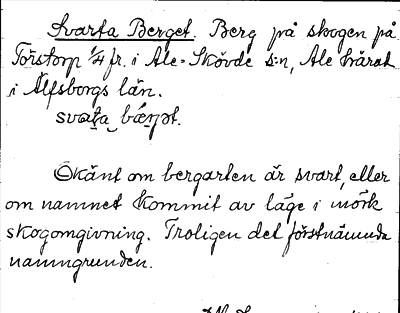 Svarta Berget. Berg på skogen på
Torstorp 1/4 fr. i Ale-Skövde s:n, Ale härad
i Älfsborgs län.
Okänt om bergarten är svart, eller
om namnet kommit av läge i mörk
skogomgivning. Troligen det förstnämnda
namngrunden.